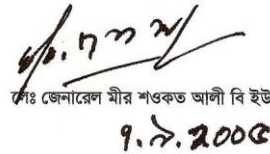 লেঃ জেনারেল মীর শওকত আলী বি ইউ
৭.৯.২০০৫